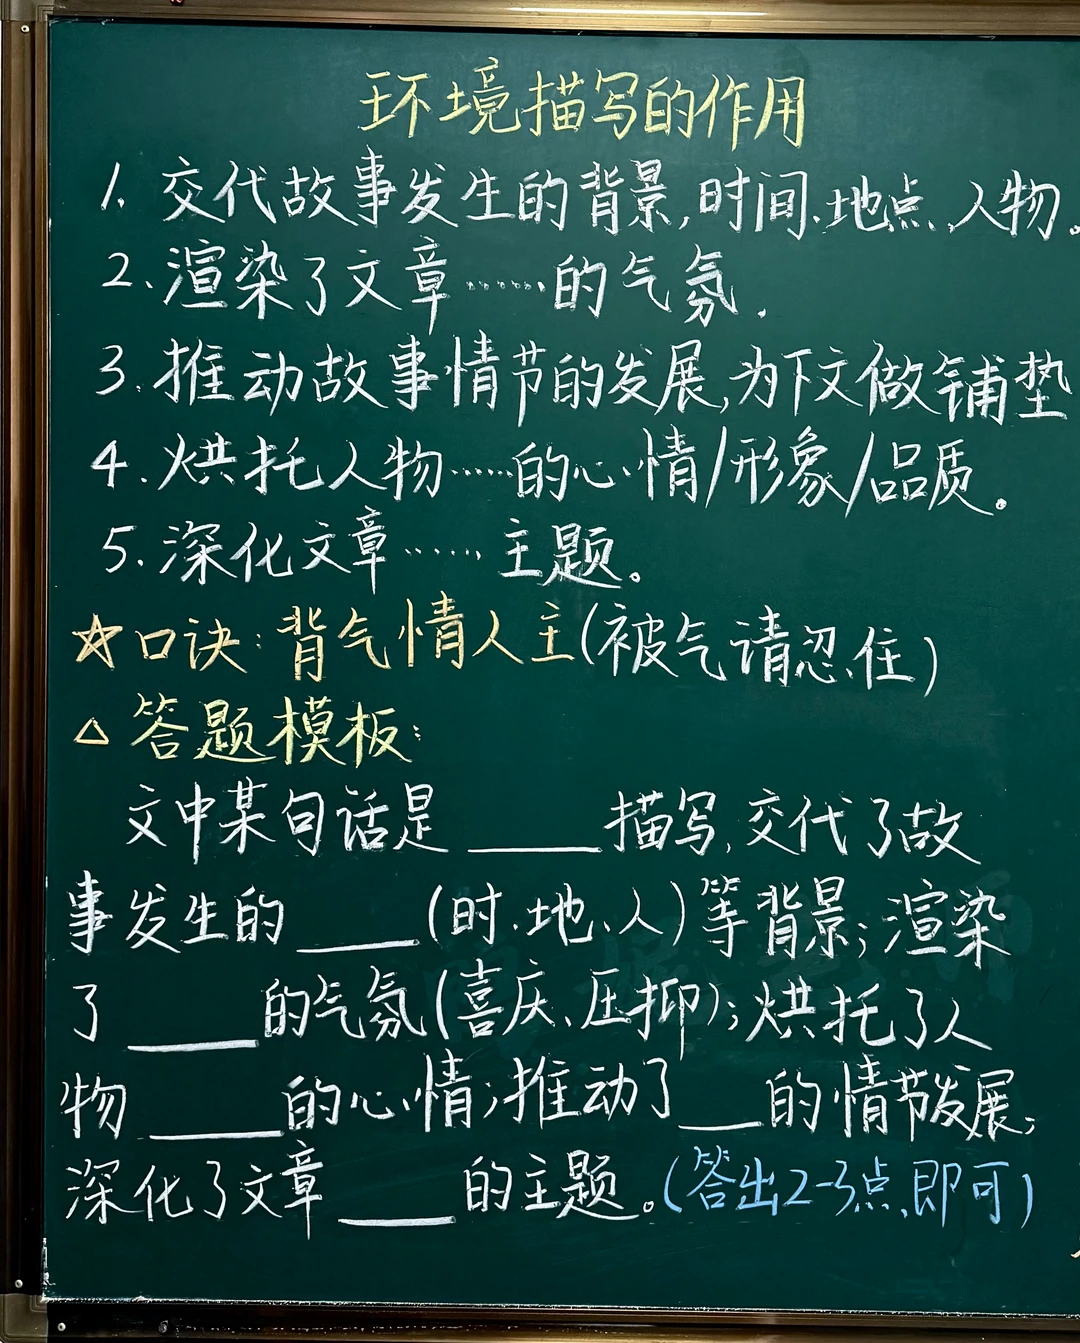 环境描写的作用
1.交代故事发生的背景,时间、地点、人物。
2.渲染了文章……的气氛.
3.推动故事情节的发展,为下文做铺垫
4.烘托人物……的心情/形象/品质。
5.深化文章……主题。
☆口诀:背气情人主(被气请忍住)
△答题模板:
文中某句话是____描写,交代了故
事发生的____(时、地、人)等背景;渲染
了____的气氛(喜庆、压抑);烘托了人
物____的心情;推动了___的情节发展;
深化了文章____的主题。(答出2-3点即可)